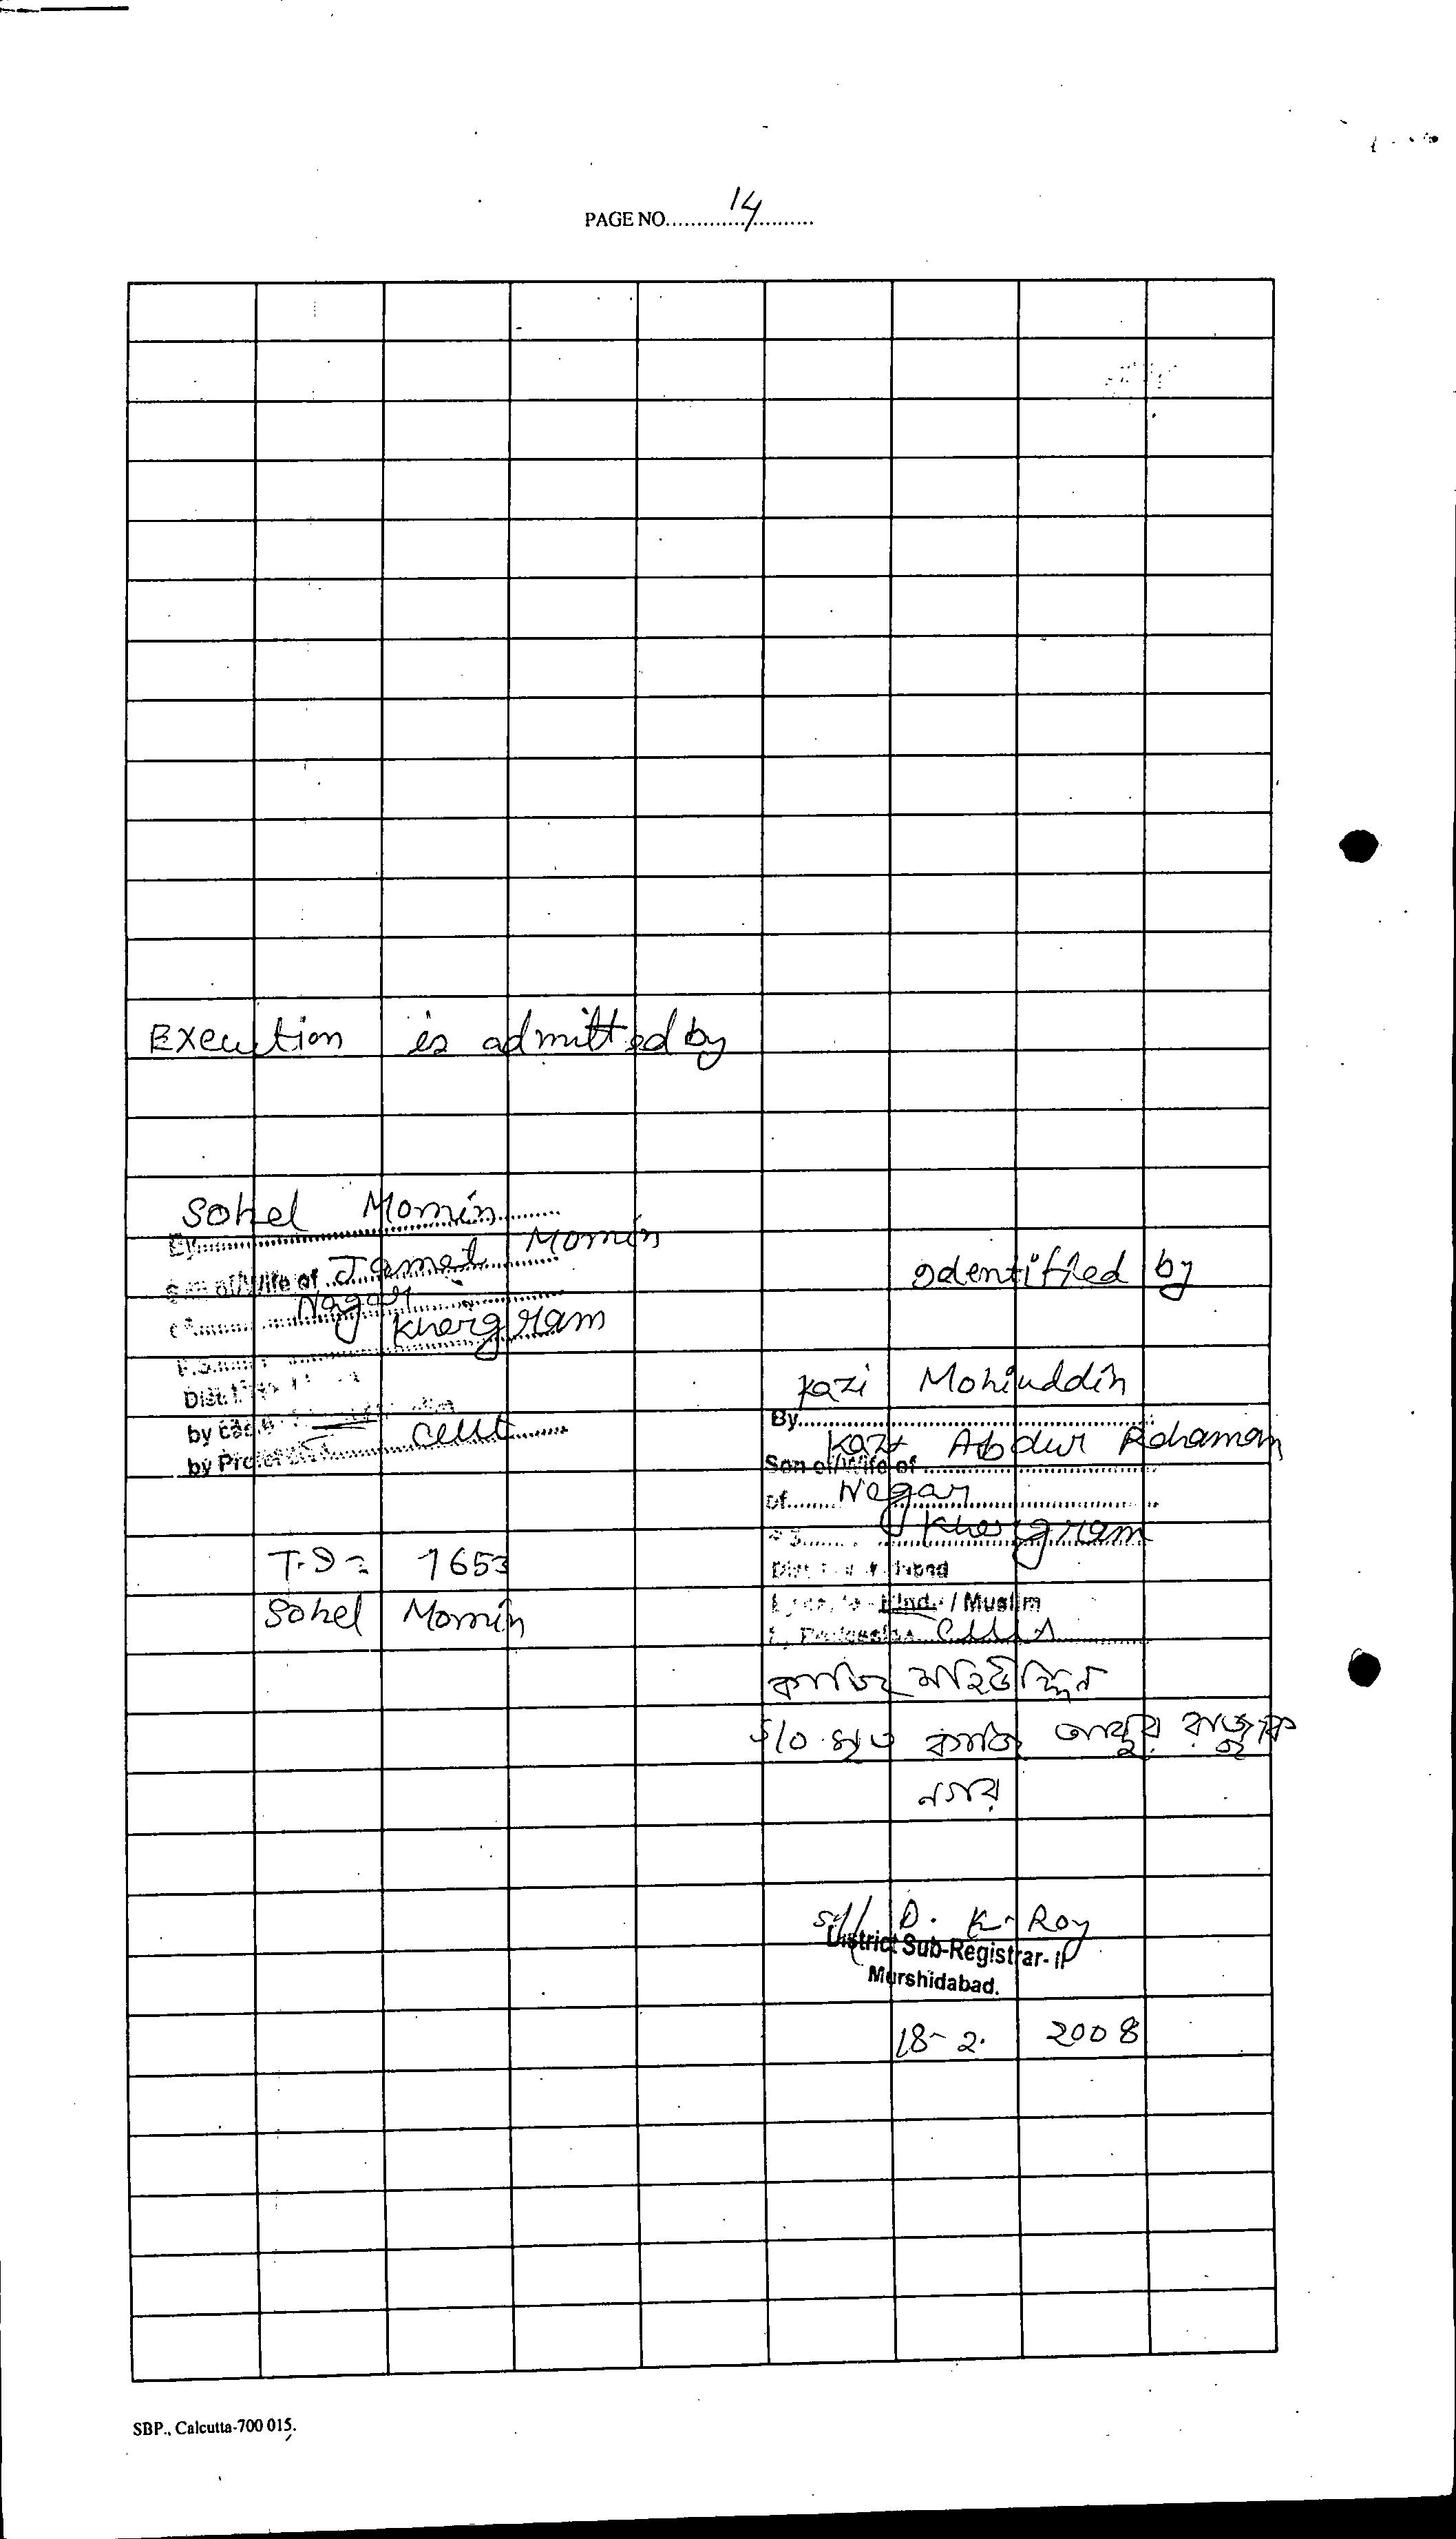 PAGE NO. 14
Execution is admitted by
Sohel Momin
By
Son of/Wife of Jamet Momin
Nagar
Khergram
P.S.
Dist.
by Caste
by Profession Cult
T.I = 1653
Sohel Momin
Identified by
Kazi Mohiuddin
By
Son of/Wife of Kazi Abdur Rohaman
of Nagar
P.S. Khergram
Dist.
by caste - Hindu / Muslim
by Profession
কাজি মহিউদ্দিন
S/O মৃত কাজি আব্দুর রাজ্জাক
নগর
Sd/ D. K. Roy
District Sub-Registrar-II
Murshidabad.
18-2. 2008
SBP., Calcutta-700 015.